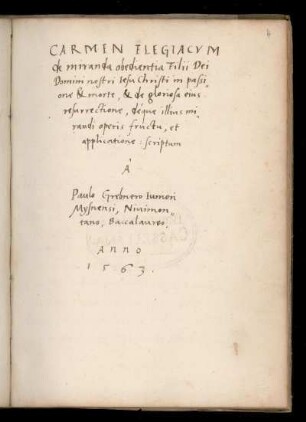 CARMEN ELEGIACVM
de miranda obedientia Filii Dei
Domini nostri Iesu Christi in passi
one & morte, & de gloriosa eius
resurrectione, deque illius mi
randi operis fructu, et
applicatione: scriptum
Á
Paulo Grebnero Iuniori
Mysnensi, Nivimon
tano, Baccalaureo,
Anno
1563.